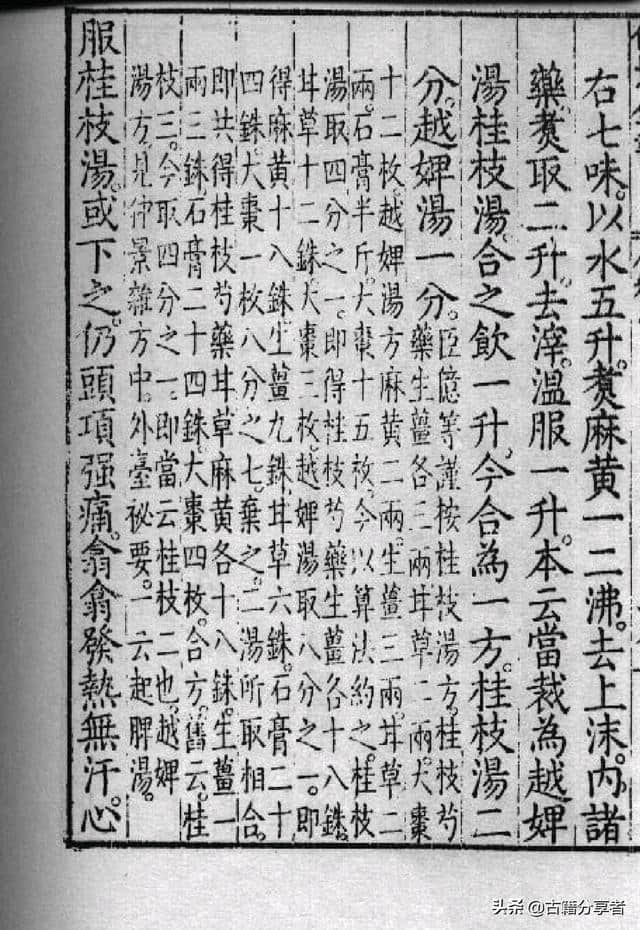 右七味。以水五升。煑麻黄一二沸。去上沫。内諸
藥。煑取二升。去滓。溫服一升。本云當裁為越婢
湯桂枝湯。合之飲一升。今合為一方。桂枝湯二
分。越婢湯一分。
臣億等謹按桂枝湯方。桂枝芍
藥生薑各三兩甘草二兩。大棗
十二枚。越婢湯方麻黄二兩。生薑三兩。甘草二
兩。石膏半斤。大棗十五枚。今以算法約之。桂枝
湯取四分之一。即得桂枝芍藥生薑各十八銖。
甘草十二銖。大棗三枚。越婢湯取八分之一。即
得麻黄十八銖生薑九銖。甘草六銖。石膏二十
四銖。大棗一枚八分之七。棄之。二湯所取相合。
即共得桂枝芍藥甘草麻黄各十八銖。生薑一
兩三銖石膏二十四銖。大棗四枚。合方。舊云。桂
枝三。今取四分之一。即當云桂枝二也。越婢
湯方。見仲景雜方中。外臺祕要。一云起脾湯。
服桂枝湯。或下之。仍頭項强痛。翕翕發熱無汗。心
头条 @古籍分享者